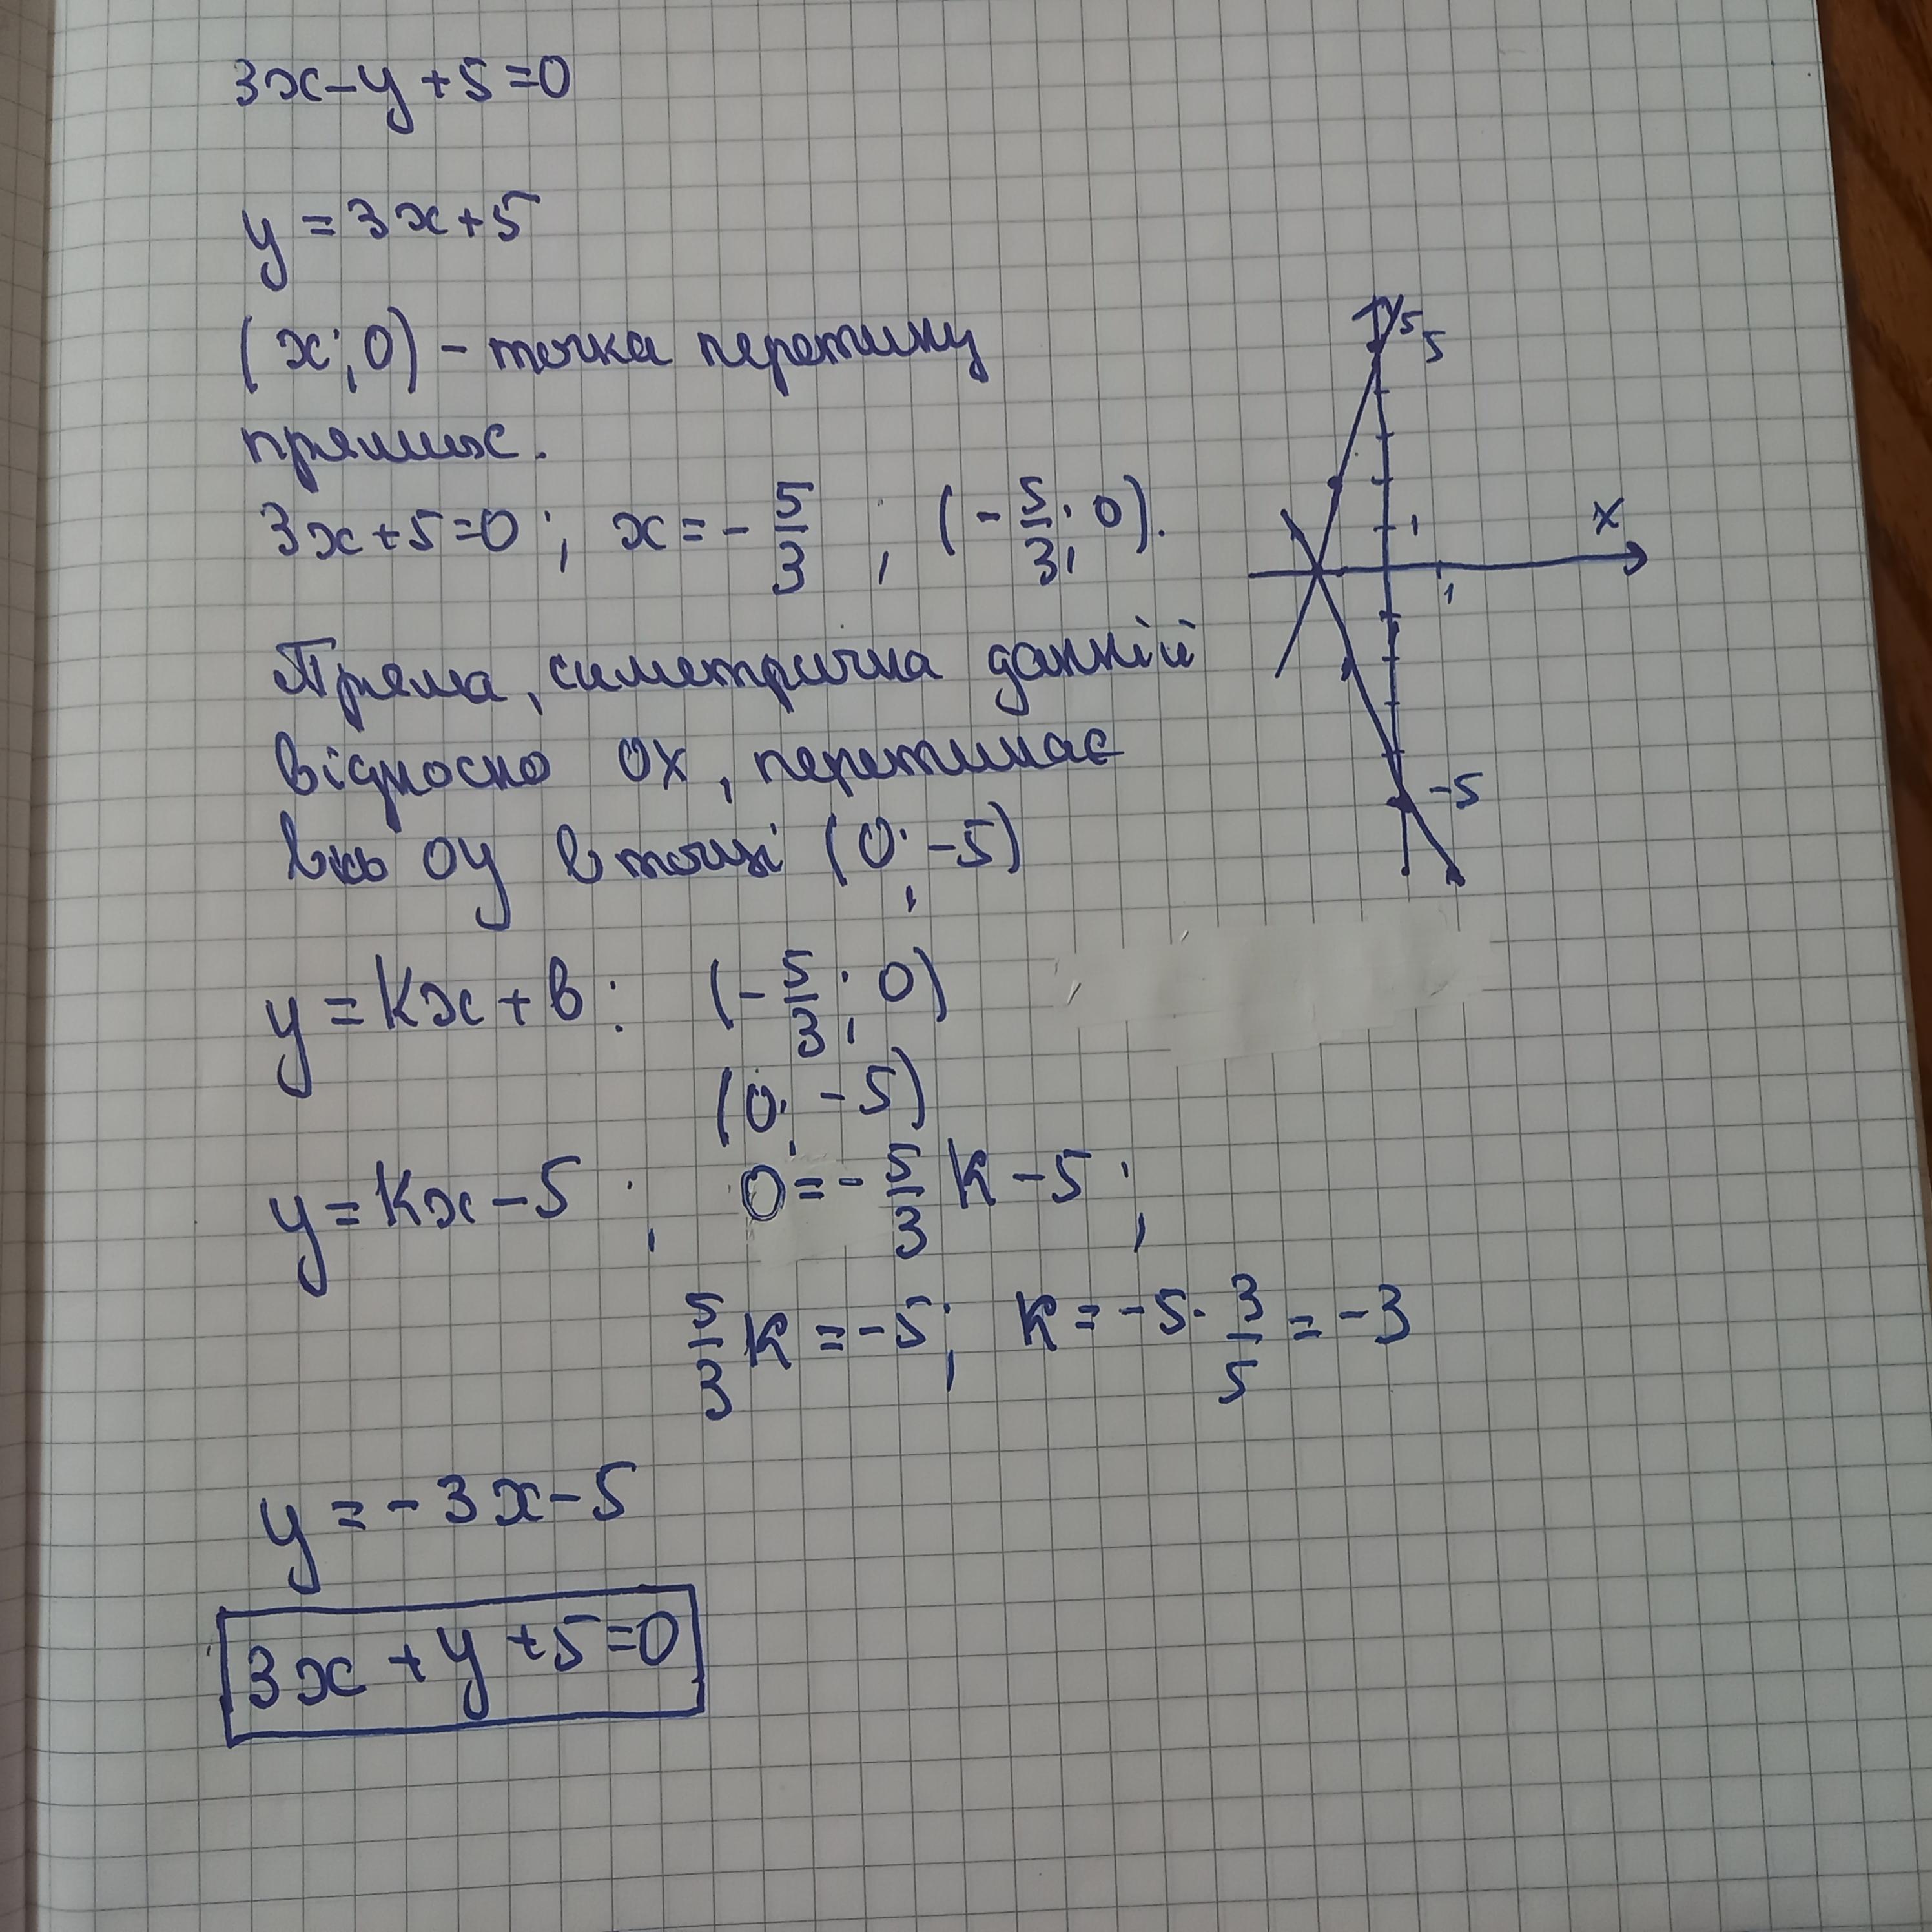 3x-y+5=0
y=3x+5
(x;0) - точка перетину
прямих.
3x+5=0; x=-5/3; (-5/3;0).
Пряма, симетрична данній
відносно OX, перетинає
вісь OY в точці (0;-5)
y=kx+b: (-5/3;0)
(0;-5)
y=kx-5; 0=-5/3k-5;
5/3k=-5; k=-5·3/5=-3
y=-3x-5
3x+y+5=0
y
5
5
1
x
1
-5